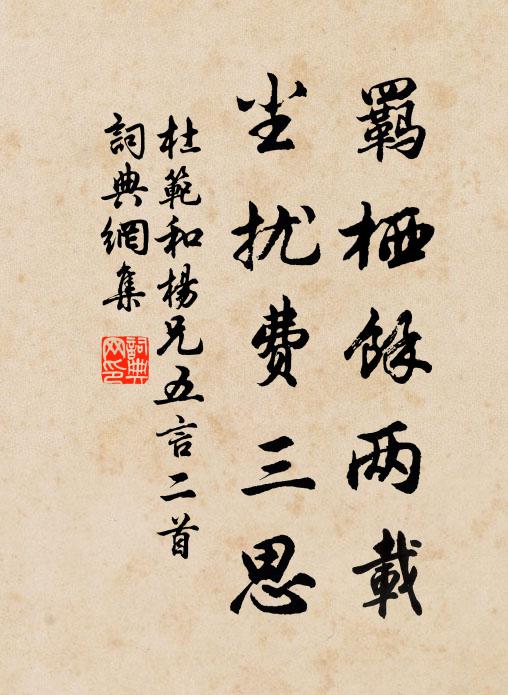 羇栖餘两載
尘扰費三思
杜範和楊兄五言二首
詞典網集
詞典网印